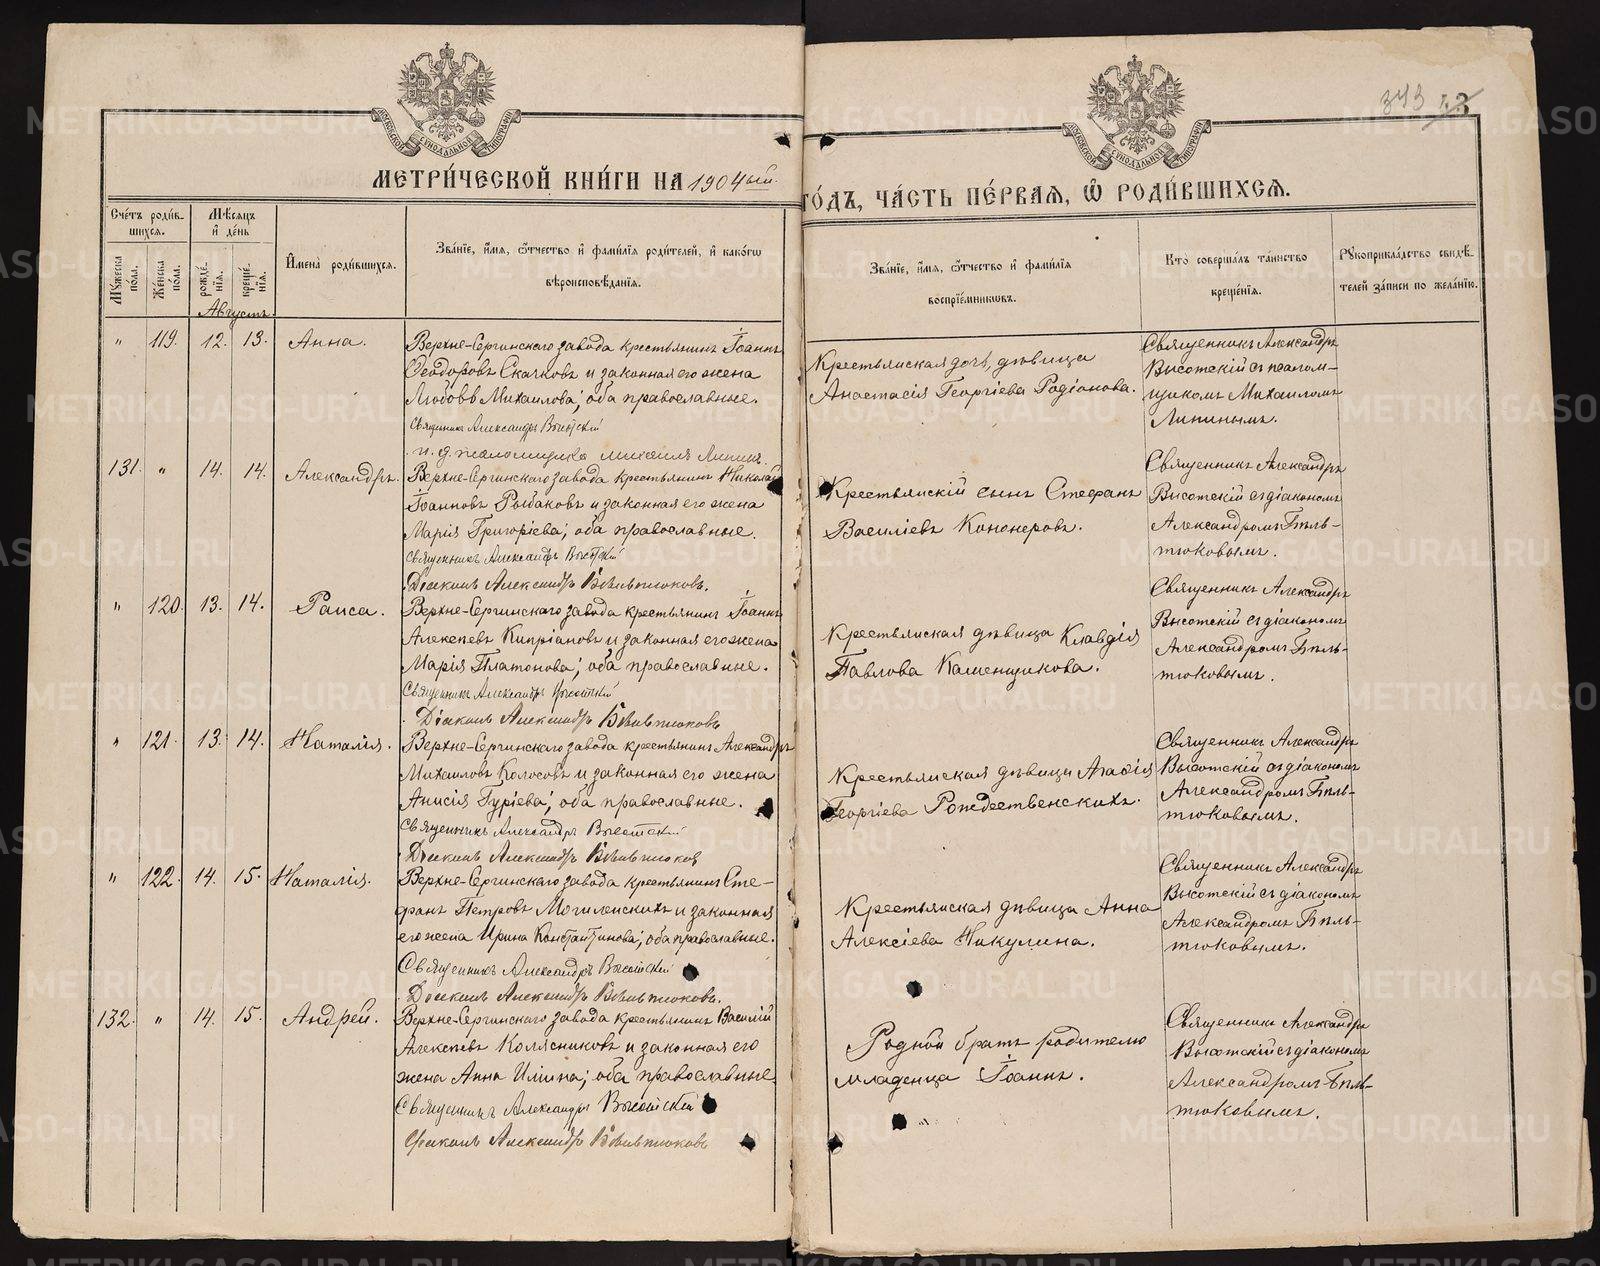 343 43
МОСКОВСКОЙ СѴНОДАЛЬНОЙ ТИПОГРАФІИ
МОСКОВСКОЙ СѴНОДАЛЬНОЙ ТИПОГРАФІИ
МЕТРИ́ЧЕСКОЙ КНИ́ГИ НА 1904ый.
ГО́ДЪ, ЧА́СТЬ ПЕ́РВАѦ, Ѡ҆ РОДИ́ВШИХСѦ.
Сче́тъ роди́в-
шихсѧ.
Мꙋ́жеска по́ла.
Же́нска по́ла.
Мѣ́сѧцъ
и҆ де́нь
рожде́-
нїѧ.
креще́-
нїѧ.
Имена̀ роди́вшихсѧ.
Зва́нїе, и҆́мѧ, ѻ҆́тчество и҆ фами́лїѧ роди́телей, и҆ како́гѡ
вѣроисповѣ́данїѧ.
Зва́нїе, и҆́мѧ, ѻ҆́тчество и҆ фами́лїѧ
воспрїе́мникѡвъ.
Кто̀ соверша́лъ та́инство
креще́нїѧ.
Рꙋкоприкла́дство свидѣ́-
телей за́писи по жела́нїю.
Августъ.
" 119. 12. 13. Анна.
Верхне-Сергинскаго завода крестьянинъ Іоаннъ
Ѳеодоровъ Скачковъ и законная его жена
Любовь Михаилова; оба православные.
Священникъ Александръ Высотскій
и. д. псаломщика Михаилъ Липинъ.
Крестьянская дочь, дѣвица
Анастасія Георгіева Родіонова.
Священникъ Александръ
Высотскій съ псалом-
щикомъ Михаиломъ
Липинымъ.
131. " 14. 14. Александръ.
Верхне-Сергинскаго завода крестьянинъ Николай
Іоанновъ Рыбаковъ и законная его жена
Марія Григоріева; оба православные.
Священникъ Александръ Высотскій
Діаконъ Александръ Бѣльтюковъ.
Крестьянскій сынъ Стефанъ
Василіевъ Кононеровъ.
Священникъ Александръ
Высотскій съ діакономъ
Александромъ Бѣль-
тюковымъ.
" 120. 13. 14. Раиса.
Верхне-Сергинскаго завода крестьянинъ Іоаннъ
Алексѣевъ Кипріановъ и законная его жена
Марія Платонова; оба православные.
Священникъ Александръ Высотскій
Діаконъ Александръ Бѣльтюковъ
Крестьянская дѣвица Клавдія
Павлова Каменщикова.
Священникъ Александръ
Высотскій съ діакономъ
Александромъ Бѣль-
тюковымъ.
" 121. 13. 14. Наталія.
Верхне-Сергинскаго завода крестьянинъ Александръ
Михаиловъ Колосовъ и законная его жена
Анисія Гуріева; оба православные.
Священникъ Александръ Высотскій
Діаконъ Александръ Бѣльтюков
Крестьянская дѣвица Агафія
Георгіева Рождественскихъ.
Священникъ Александръ
Высотскій съ діакономъ
Александромъ Бѣль-
тюковымъ.
" 122. 14. 15. Наталія.
Верхне-Сергинскаго завода крестьянинъ Сте-
фанъ Петровъ Могиленскихъ и законная
его жена Ирина Константинова; оба православные.
Священникъ Александръ Высотскій
Діаконъ Александръ Бѣльтюковъ.
Крестьянская дѣвица Анна
Алексіева Никулина.
Священникъ Александръ
Высотскій съ діакономъ
Александромъ Бѣль-
тюковымъ.
132. " 14. 15. Андрей.
Верхне-Сергинскаго завода крестьянинъ Василій
Алексѣевъ Колясниковъ и законная его
жена Анна Иліина; оба православные.
Священникъ Александръ Высотскій
Діаконъ Александръ Бѣльтюковъ
Родной братъ родителю
младенца Іоаннъ.
Священникъ Александръ
Высотскій съ діакономъ
Александромъ Бѣль-
тюковымъ.
METRIKI.GASO-URAL.RU